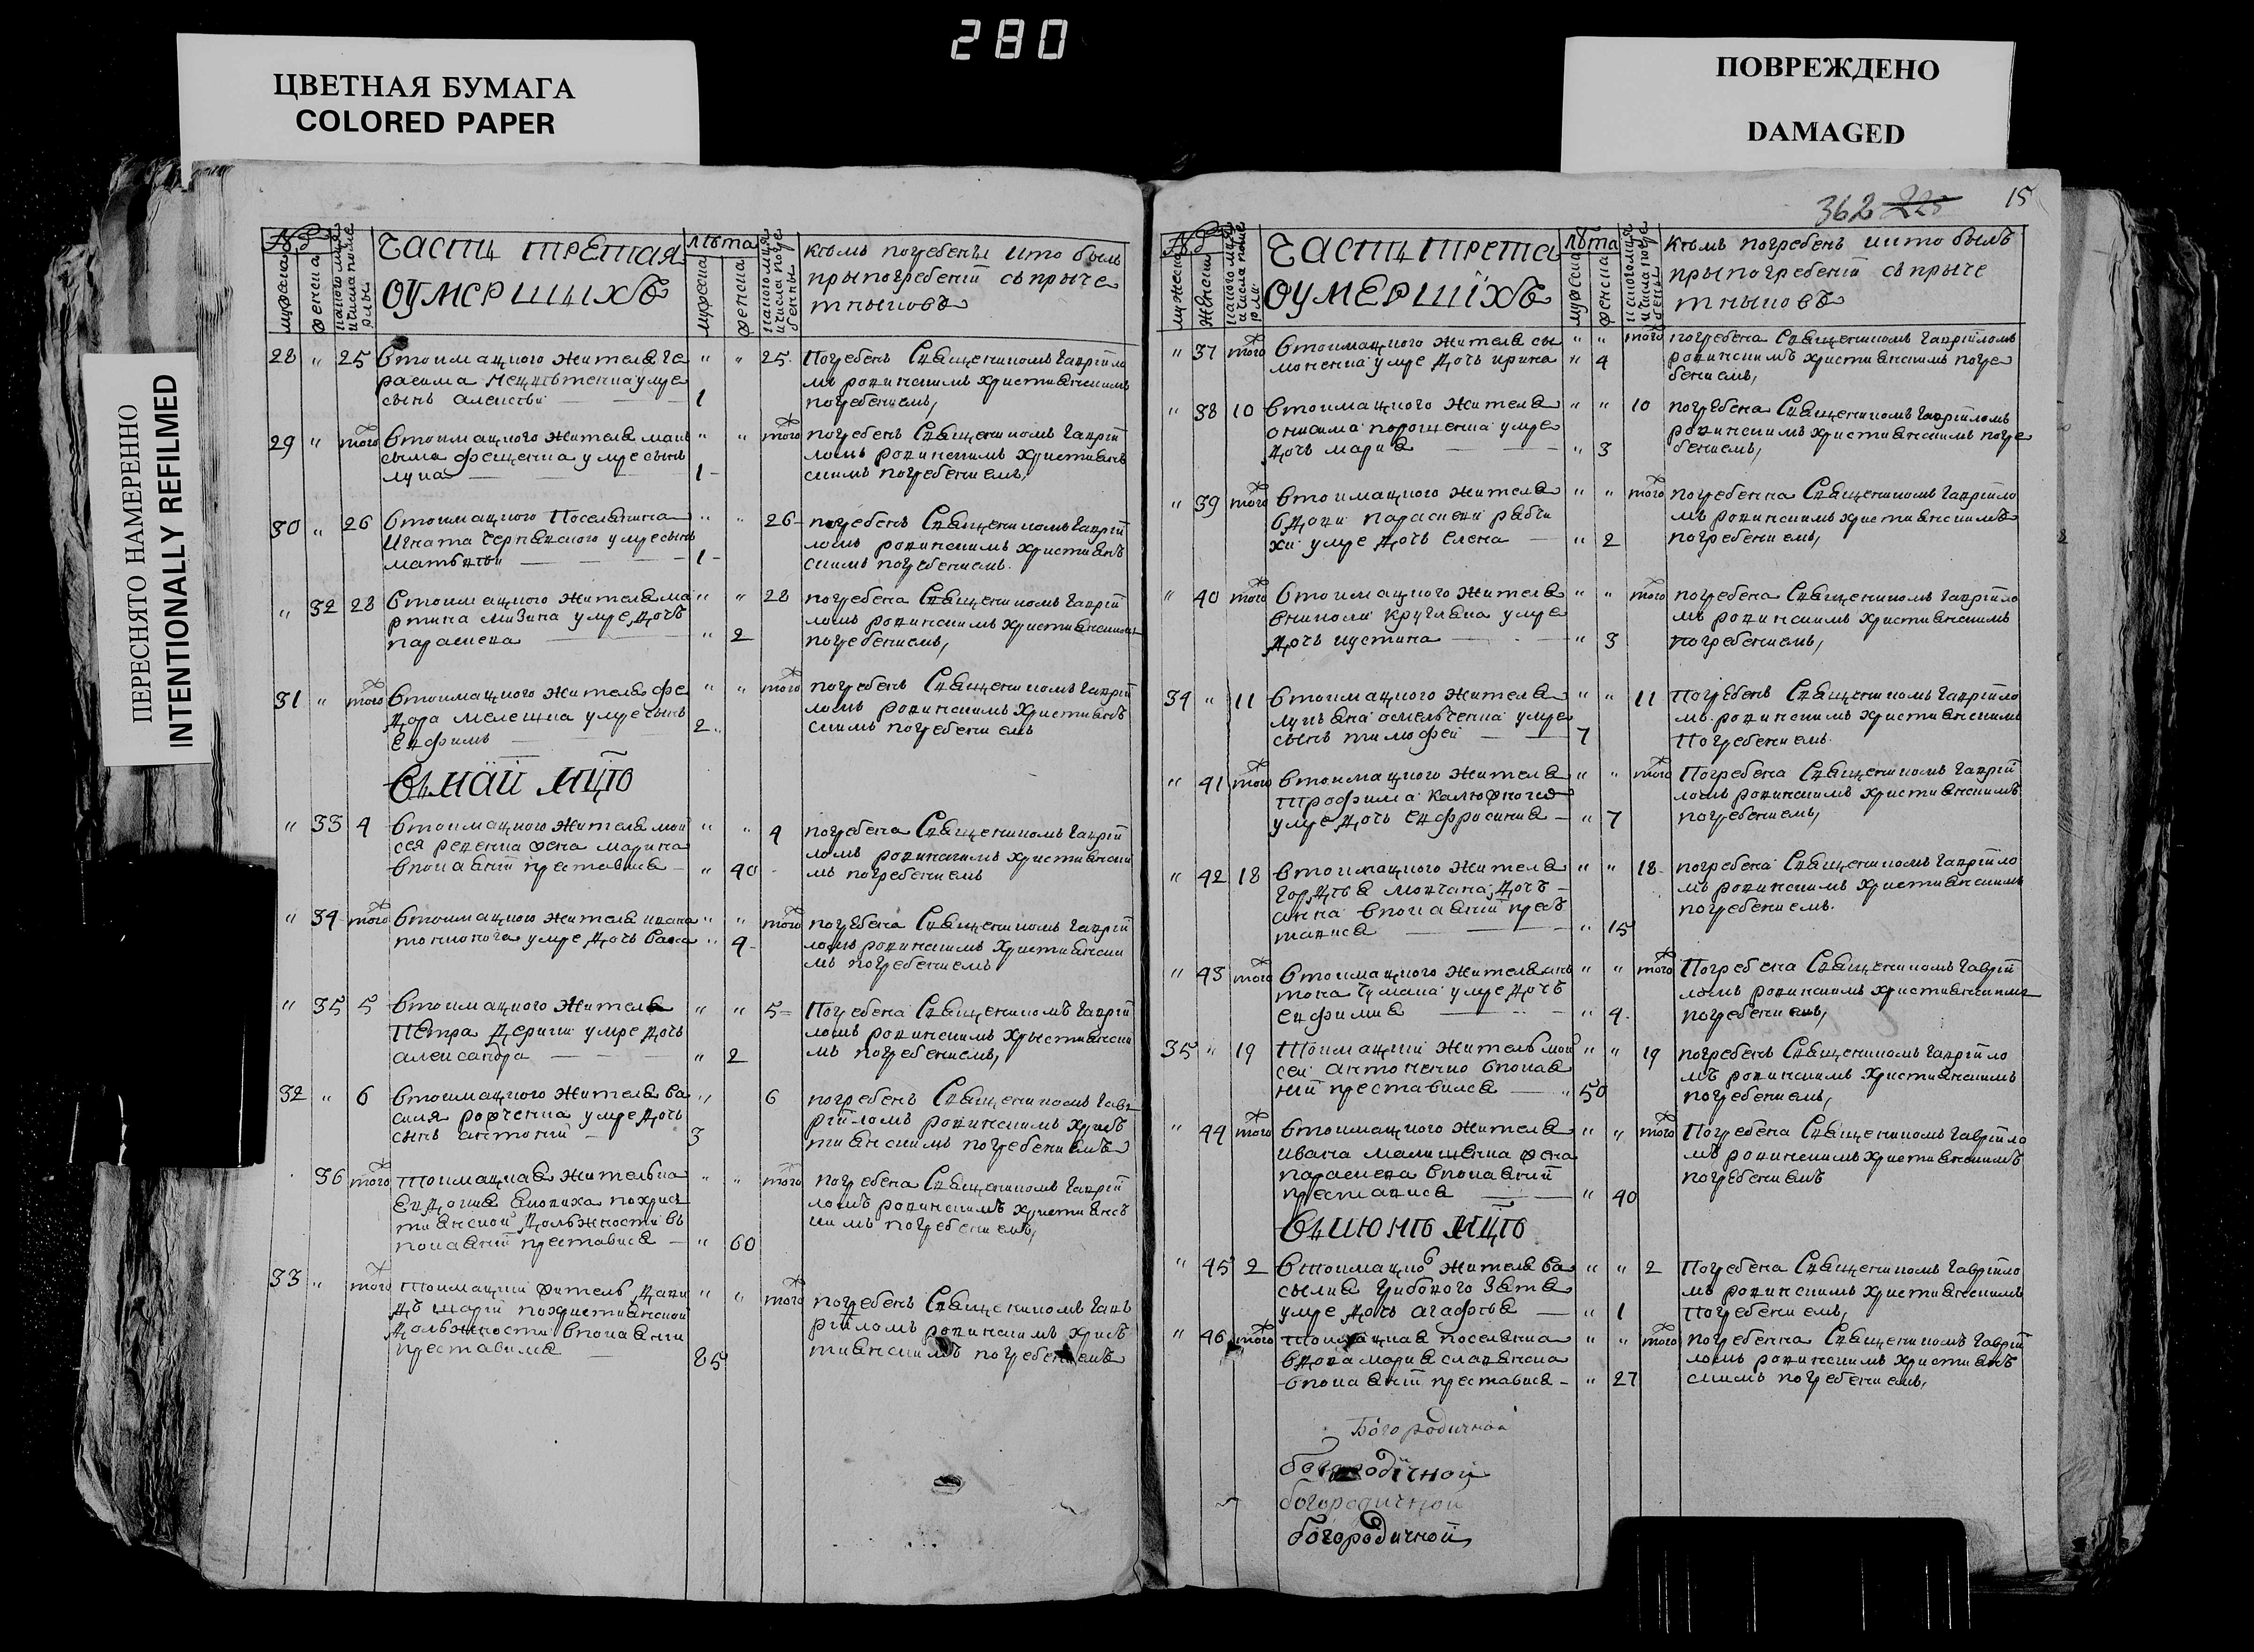 280
ЦВЕТНАЯ БУМАГА
COLORED PAPER
ПОВРЕЖДЕНО
DAMAGED
ПЕРЕСНЯТО НАМЕРЕННО
INTENTIONALLY REFILMED
№
мужеска
женска
часть третая
оумершихъ
лѣта
мужеска
женска
кѣмъ погребенъ и кто былъ
при погребенїй съ приче
тныковъ
28 " 25 втоимацкого жителя ге
расима
сынъ алексѣй 1
" " 25 Погребенъ Священикомъ Гавріило
мъ ровинскимъ християнскимъ
погребениемъ,
29 " того втоимацкого жителя мак
сыма фещенка умре сынъ
лука 1
" " того погребенъ Священикомъ Гавріи
ломъ ровинскимъ християнъ
скимъ погребениемъ,
30 " 26 втоимацкого Поселянина
Игната чернявского умре сынъ
матвѣй 1
" " 26 погребенъ Священикомъ Гавріи
ломъ ровинскимъ християнъ
скимъ погребениемъ.
" 32 28 втоимацкого жителя ма
ртина мизина умре дочь
параскева " 2
" " 28 погребена Священикомъ Гавріи
ломъ ровинскимъ християнскимъ
погребениемъ,
31 " того втоимацкого жителя фе
дора мелешка умре сынъ
евфимъ 2
" " того погребенъ Священикомъ Гавріи
ломъ ровинскимъ християнъ
скимъ погребениемъ
въ маїи мцѣ
" 33 4 втоимацкого жителя мой
сея женка марина
впокаянїй преставися " 40
" " 4 погребена Священикомъ Гавріи
ломъ ровинскимъ християнски
мъ погребениемъ
" 34 того втоимацкого жителя ивана
тонконога умре дочь васса " 4
" " того погребена Священикомъ Гавріи
ломъ ровинскимъ християнски
мъ погребениемъ
" 35 5 втоимацкого жителя
Петра деркги умре дочь
александра " 2
" " 5 Погребена Священикомъ Гавріи
ломъ ровинскимъ християнски
мъ погребениемъ,
32 " 6 втоимацкого жителя ва
силя умре дочь
сынъ антоний 3
" 6 погребенъ Священикомъ Гавъ
ріиломъ ровинскимъ христъ
тиянскимъ погребениемъ
36 того тоимацкая жителка
Евдокия похрис
тиянской должности въ
покаянїй преставися " 60
" " того погребена Священикомъ Гавріи
ломъ ровинскимъ християнс
кимъ погребениемъ,
33 " того тоимацкий житель дави
дъ похристиянской
должности впокаянїи
преставился 85
" " того погребенъ Священикомъ Гавъ
ріиломъ ровинскимъ христъ
тиянскимъ погребениемъ
362 225
15
№
мужеска
женски
часть трета
оумершїхъ
лѣта
мужеска
женска
кѣмъ погребенъ икто былъ
прыпогребенїй съ прыче
тныковъ
" 37 того втоимацкого жителя сы
моненка умре дочь ирина " 4
" " того погребена Священикомъ Гавріиломъ
ровинскимъ християнскимъ погре
бениемъ,
" 38 10 втоимацкого жителя
онисима порощенка умре
дочь мария " 3
" " 10 погребена Священикомъ Гавріиломъ
ровинскимъ християнскимъ погре
бениемъ,
" 39 того втоимацкого жителя
вдови параскеви рябчи
хи умре дочь елена " 2
" " того погребенна Священикомъ Гавріило
мъ ровинскимъ християнскимъ
погребениемъ,
" 40 того втоимацкого жителя
кругляка умре
дочь иустина " 3
" " того погребена Священикомъ Гавріило
мъ ровинскимъ християнскимъ
погребениемъ,
34 " 11 втоимацкого жителя
лукяна омельченка умре
сынъ тимофей 7
" " 11 Погребенъ Священикомъ Гавріило
мъ ровинскимъ християнскимъ
Погребениемъ.
" 41 того втоимацкого жителя
трофима калюжного
умре дочь евфросиния " 7
" " того Погребена Священикомъ Гавріи
ломъ ровинскимъ християнскимъ
погребениемъ,
" 42 18 втоимацкого жителя
гордѣя мовчана дочь
анна впокаянїй прес
тавися " 15
" " 18 погребена Священикомъ Гавріило
мъ ровинскимъ християнскимъ
погребениемъ.
" 43 того втоимацкого жителя ан
тона чумака умре дочь
евфимия " 4
" " того Погребена Священикомъ Гавріи
ломъ ровинскимъ християнским
погребениемъ,
35 " 19 Тоимацкий житель мой
сей антоненко впокая
нїй преставился 50
" " 19 погребенъ Священикомъ Гавріило
мъ ровинскимъ християнскимъ
погребениемъ,
" 44 того втоимацкого жителя
ивана малишенка жена
параскева впокаянїй
преставися " 40
" " того Погребена Священикомъ Гавріило
мъ ровинскимъ християнскимъ
погребениемъ
въ июнѣ мцѣ
" 45 2 втоимацко жителя ва
сылия грибового зятя
умре дочь агафия " 1
" " 2 Погребена Священикомъ Гавріило
мъ ровинскимъ християнскимъ
Погребениемъ,
" 46 того тоимацкая поселянка
вдова мария славянска
впокаянїй преставися " 27
" " того погребенна Священикомъ Гавріи
ломъ ровинскимъ християнъ
скимъ погребениемъ,
Богородичной
богородичной
богородичной
богородичной